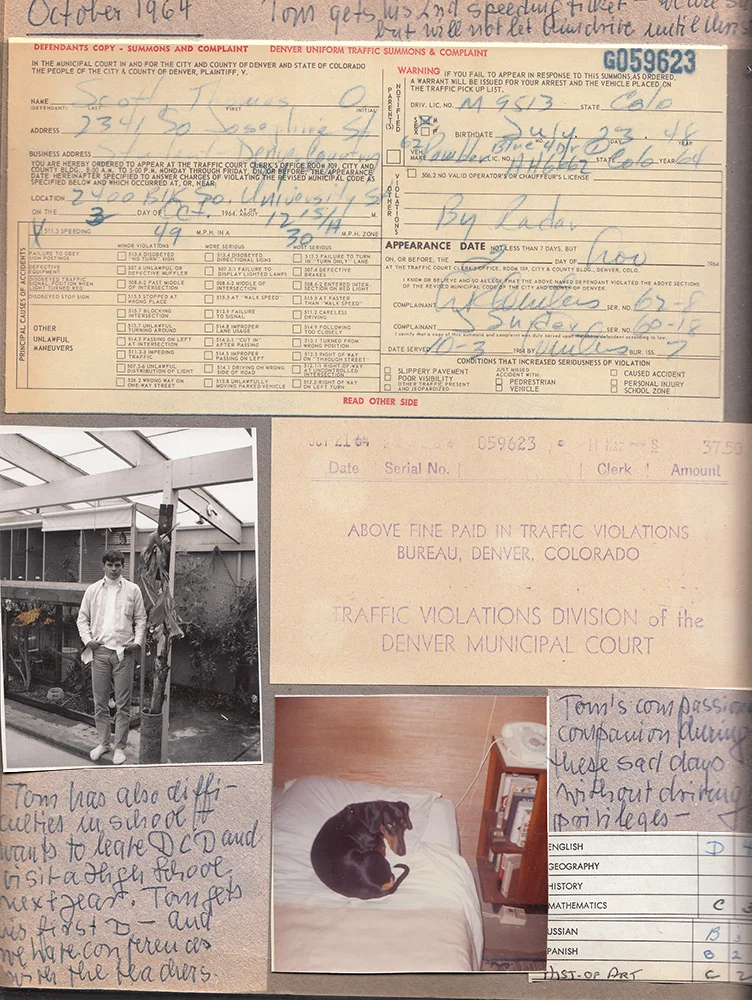 October 1964
Tom gets his 2nd speeding ticket - we are
but will not let him drive until
DEFENDANTS COPY - SUMMONS AND COMPLAINT DENVER UNIFORM TRAFFIC SUMMONS & COMPLAINT
G059623
IN THE MUNICIPAL COURT IN AND FOR THE CITY AND COUNTY OF DENVER AND STATE OF COLORADO
THE PEOPLE OF THE CITY & COUNTY OF DENVER, PLAINTIFF, V.
NAME Scott Thomas O
(DEFENDANT) LAST FIRST INITIAL
ADDRESS 2341 So Josephine St
BUSINESS ADDRESS Student Denver Country
YOU ARE HEREBY ORDERED TO APPEAR AT THE TRAFFIC COURT CLERK'S OFFICE ROOM 109, CITY AND
COUNTY BLDG. 8:00 A.M. TO 5:00 P.M. MONDAY THROUGH FRIDAY, ON, OR BEFORE, THE APPEARANCE
DATE HEREINAFTER SPECIFIED TO ANSWER CHARGES OF VIOLATING THE REVISED MUNICIPAL CODE AS
SPECIFIED BELOW AND WHICH OCCURRED AT, OR, NEAR:
LOCATION 2400 Blk So. University St
ON THE 3 DAY OF Oct. 1964. AT OR ABOUT 12 15 A M.
511.3 SPEEDING 49 M.P.H. IN A 30 M.P.H. ZONE
WARNING IF YOU FAIL TO APPEAR IN RESPONSE TO THIS SUMMONS, AS ORDERED,
A WARRANT WILL BE ISSUED FOR YOUR ARREST AND THE VEHICLE PLACED ON
THE TRAFFIC PICK UP LIST.
PARENT(S) NOTIFIED
DRIV. LIC. NO. M 9513 STATE Colo
SEX M BIRTHDATE July. 23. 48
62 Rambler Blue 4 dr
VEH. MAKE LIC. NO. STATE Colo YEAR 64
306.2 NO VALID OPERATOR'S OR CHAUFFEUR'S LICENSE
OTHER VIOLATIONS
By Radar
APPEARANCE DATE NOT LESS THAN 7 DAYS, BUT
ON, OR BEFORE, THE 2 DAY OF Nov 1964
AT THE TRAFFIC COURT CLERK'S OFFICE, ROOM 109, CITY & COUNTY BLDG., DENVER, COLO.
I KNOW OR BELIEVE AND SO ALLEGE THAT THE ABOVE NAMED DEFENDANT VIOLATED THE ABOVE SECTIONS
OF THE REVISED MUNICIPAL CODE OF THE CITY AND COUNTY OF DENVER.
COMPLAINANT SER. NO. 62-8
COMPLAINANT Snyder SER. NO. 60-18
I certify that a copy of this summons and complaint was duly served upon the above defendant according to law.
DATE SERVED 10-3 1964 BY BUR. ISS. 7
PRINCIPAL CAUSES OF ACCIDENTS
MINOR VIOLATIONS MORE SERIOUS MOST SERIOUS
FAILURE TO OBEY SIGN POSTINGS 513.6 DISOBEYED "NO TURN" SIGN 513.4 DISOBEYED DIRECTIONAL SIGNS 513.5 FAILURE TO TURN IN "TURN ONLY" LANE
DEFECTIVE EQUIPMENT 507.6 UNLAWFUL OR DEFECTIVE MUFFLER 507.2-1 FAILURE TO DISPLAY LIGHTED LAMPS 507.4 DEFECTIVE BRAKES
DISOBEYED TRAFFIC SIGNAL POSITION WHEN LIGHT TURNED RED 508.6-2 PAST MIDDLE OF INTERSECTION 508.6-2 MIDDLE OF INTERSECTION 508.6-2 ENTERED INTERSECTION ON RED LIGHT
DISOBEYED STOP SIGN 515.5 STOPPED AT WRONG PLACE 515.5 AT "WALK SPEED" 515.5 AT FASTER THAN "WALK SPEED"
OTHER UNLAWFUL MANEUVERS
515.7 BLOCKING INTERSECTION 513.9 FAILURE TO SIGNAL 511.2 CARELESS DRIVING
513.7 UNLAWFUL TURNING AROUND 514.8 IMPROPER LANE USAGE 514.9 FOLLOWING TOO CLOSELY
514.3 PASSING ON LEFT AT INTERSECTION 514.3-1 "CUT IN" AFTER PASSING 513.1 TURNED FROM WRONG POSITION
511.2-3 IMPEDING TRAFFIC 514.3 IMPROPER PASSING ON LEFT 512.3 RIGHT OF WAY ON "THROUGH STREET"
507.3-6 UNLAWFUL DISTRIBUTION OF LIGHT 514.1 DRIVING ON WRONG SIDE OF ROAD 512.1-1 RIGHT OF WAY AT UNCONTROLLED INTERSECTION
508.2 WRONG WAY ON ONE-WAY STREET 515.8 UNLAWFULLY MOVING PARKED VEHICLE 512.2 RIGHT OF WAY ON LEFT TURN
CONDITIONS THAT INCREASED SERIOUSNESS OF VIOLATION
SLIPPERY PAVEMENT
POOR VISIBILITY
OTHER TRAFFIC PRESENT AND JEOPARDIZED
JUST MISSED ACCIDENT WITH:
PEDESTRIAN
VEHICLE
CAUSED ACCIDENT
PERSONAL INJURY
SCHOOL ZONE
READ OTHER SIDE
OCT 21 64 059623 H Haz S 37.50
Date Serial No. Clerk Amount
ABOVE FINE PAID IN TRAFFIC VIOLATIONS
BUREAU, DENVER, COLORADO
TRAFFIC VIOLATIONS DIVISION of the
DENVER MUNICIPAL COURT
Tom's compassion
companion during
these sad days
without driving
privileges -
Tom has also diffi-
culties in school &
wants to leave DCD and
visit a High School
next year. Tom gets
his first D - and
we have conferences
with the teachers.
ENGLISH D
GEOGRAPHY
HISTORY
MATHEMATICS C 3
USSIAN B
PANISH B 2
HIST-OF ART C 2